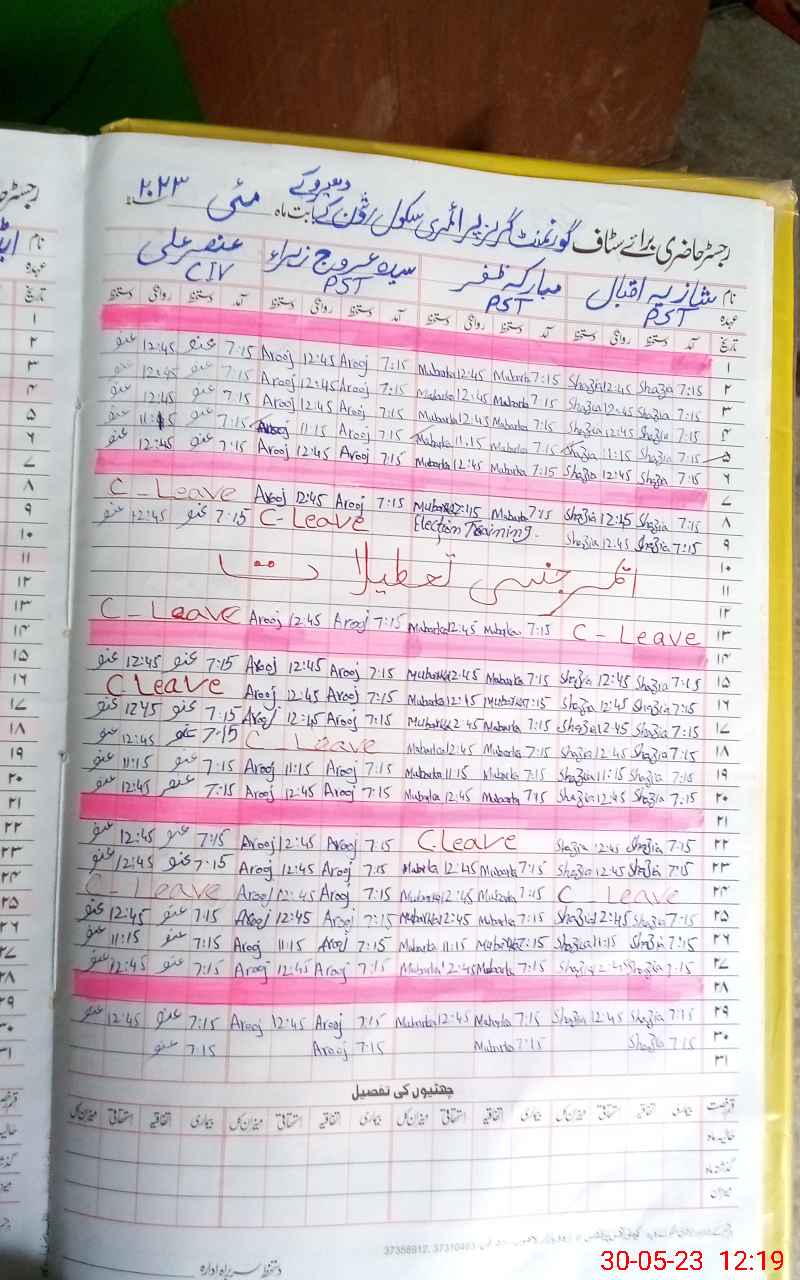 رجسٹر حاضری برائے سٹاف گورنمنٹ گرلز پرائمری سکول بابت ماہ مئی ۲۰۲۳
نام شازیہ اقبال مبارکہ ظفر سیدہ عروج زہراء عنصر علی
عہدہ PST PST PST CIV
تاریخ آمد دستخط روانگی دستخط آمد دستخط روانگی دستخط آمد دستخط روانگی دستخط آمد دستخط روانگی دستخط
۱
۲ 7:15 Shazia 12:45 Shazia 7:15 Mubarka 12:45 Mubarka 7:15 Arooj 12:45 Arooj 7:15 عنصر 12:45 عنصر
۳ 7:15 Shazia 12:45 Shazia 7:15 Mubarka 12:45 Mubarka 7:15 Arooj 12:45 Arooj 7:15 عنصر 12:45 عنصر
۴ 7:15 Shazia 12:45 Shazia 7:15 Mubarka 12:45 Mubarka 7:15 Arooj 12:45 Arooj 7:15 عنصر 12:45 عنصر
۵ 7:15 Shazia 11:15 Shazia 7:15 Mubarka 11:15 Mubarka 7:15 Arooj 11:15 Arooj 7:15 عنصر 11:15 عنصر
۶ 7:15 Shazia 12:45 Shazia 7:15 Mubarka 12:45 Mubarka 7:15 Arooj 12:45 Arooj 7:15 عنصر 12:45 عنصر
۷
۸ 7:15 Shazia 12:45 Shazia 7:15 Mubarka Mubarka 7:15 Arooj 12:45 Arooj C-Leave
۹ 7:15 Shazia 12:45 Shazia Election Training. C-Leave 7:15 عنصر 12:45 عنصر
۱۰
۱۱ ایمرجنسی تعطیلات
۱۲
۱۳ C-Leave 7:15 Mubarka 12:45 Mubarka 7:15 Arooj 12:45 Arooj C-Leave
۱۴
۱۵ 7:15 Shazia 12:45 Shazia 7:15 Mubarka 12:45 Mubarka 7:15 Arooj 12:45 Arooj 7:15 عنصر 12:45 عنصر
۱۶ 7:15 Shazia 12:45 Shazia 7:15 Mubarka 12:45 Mubarka 7:15 Arooj 12:45 Arooj C Leave
۱۷ 7:15 Shazia 12:45 Shazia 7:15 Mubarka 12:45 Mubarka 7:15 Arooj 12:45 Arooj 7:15 عنصر 12:45 عنصر
۱۸ 7:15 Shazia 12:45 Shazia 7:15 Mubarka 12:45 Mubarka C-Leave 7:15 عنصر 12:45 عنصر
۱۹ 7:15 Shazia 11:15 Shazia 7:15 Mubarka 11:15 Mubarka 7:15 Arooj 11:15 Arooj 7:15 عنصر 11:15 عنصر
۲۰ 7:15 Shazia 12:45 Shazia 7:15 Mubarka 12:45 Mubarka 7:15 Arooj 12:45 Arooj 7:15 عنصر 12:45 عنصر
۲۱
۲۲ 7:15 Shazia 12:45 Shazia C.Leave 7:15 Arooj 12:45 Arooj 7:15 عنصر 12:45 عنصر
۲۳ 7:15 Shazia 12:45 Shazia 7:15 Mubarka 12:45 Mubarka 7:15 Arooj 12:45 Arooj 7:15 عنصر 12:45 عنصر
۲۴ C Leave 7:15 Mubarka 12:45 Mubarka 7:15 Arooj 12:45 Arooj C-Leave
۲۵ 7:15 Shazia 12:45 Shazia 7:15 Mubarka 12:45 Mubarka 7:15 Arooj 12:45 Arooj 7:15 عنصر 12:45 عنصر
۲۶ 7:15 Shazia 11:15 Shazia 7:15 Mubarka 11:15 Mubarka 7:15 Arooj 11:15 Arooj 7:15 عنصر 11:15 عنصر
۲۷ 7:15 Shazia 12:45 Shazia 7:15 Mubarka 12:45 Mubarka 7:15 Arooj 12:45 Arooj 7:15 عنصر 12:45 عنصر
۲۸
۲۹ 7:15 Shazia 12:45 Shazia 7:15 Mubarka 12:45 Mubarka 7:15 Arooj 12:45 Arooj 7:15 عنصر 12:45 عنصر
۳۰ 7:15 Shazia 7:15 Mubarka 7:15 Arooj 7:15 عنصر
۳۱
چھٹیوں کی تفصیل
قسم رخصت بیماری اتفاقیہ استحقاقی میزان کل بیماری اتفاقیہ استحقاقی میزان کل بیماری اتفاقیہ استحقاقی میزان کل بیماری اتفاقیہ استحقاقی میزان کل
حالیہ ماہ
گذشتہ ماہ
میزان
37358912, 37310463
دستخط سربراہ ادارہ
30-05-23 12:19